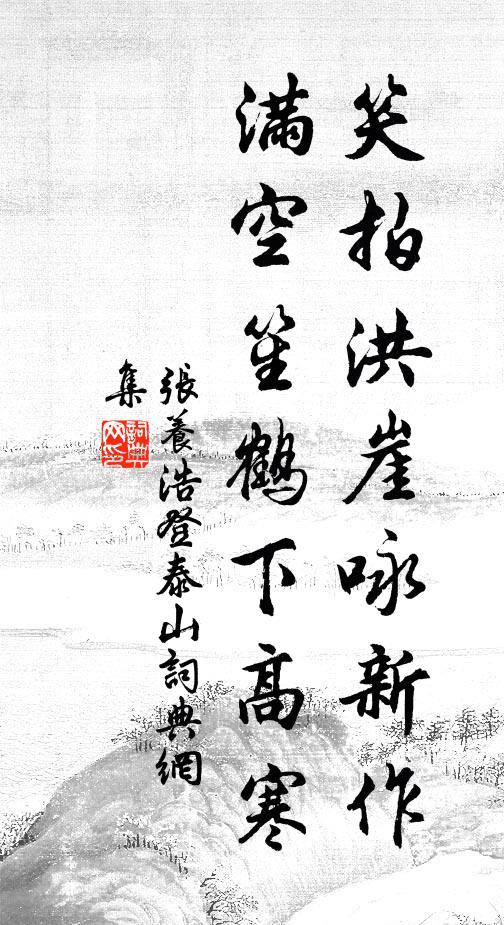 笑拍洪崖咏新作
滿空笙鶴下高寒
張養浩登泰山詞典網
集